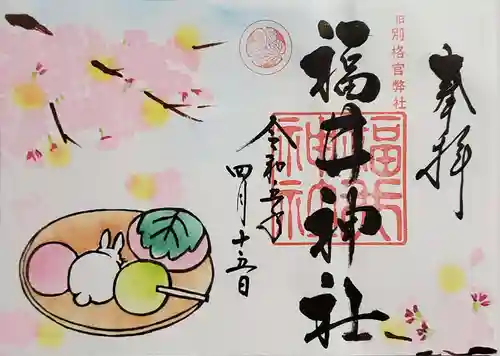 奉拝
旧別格官弊社
福井神社
令和五年
四月十五日